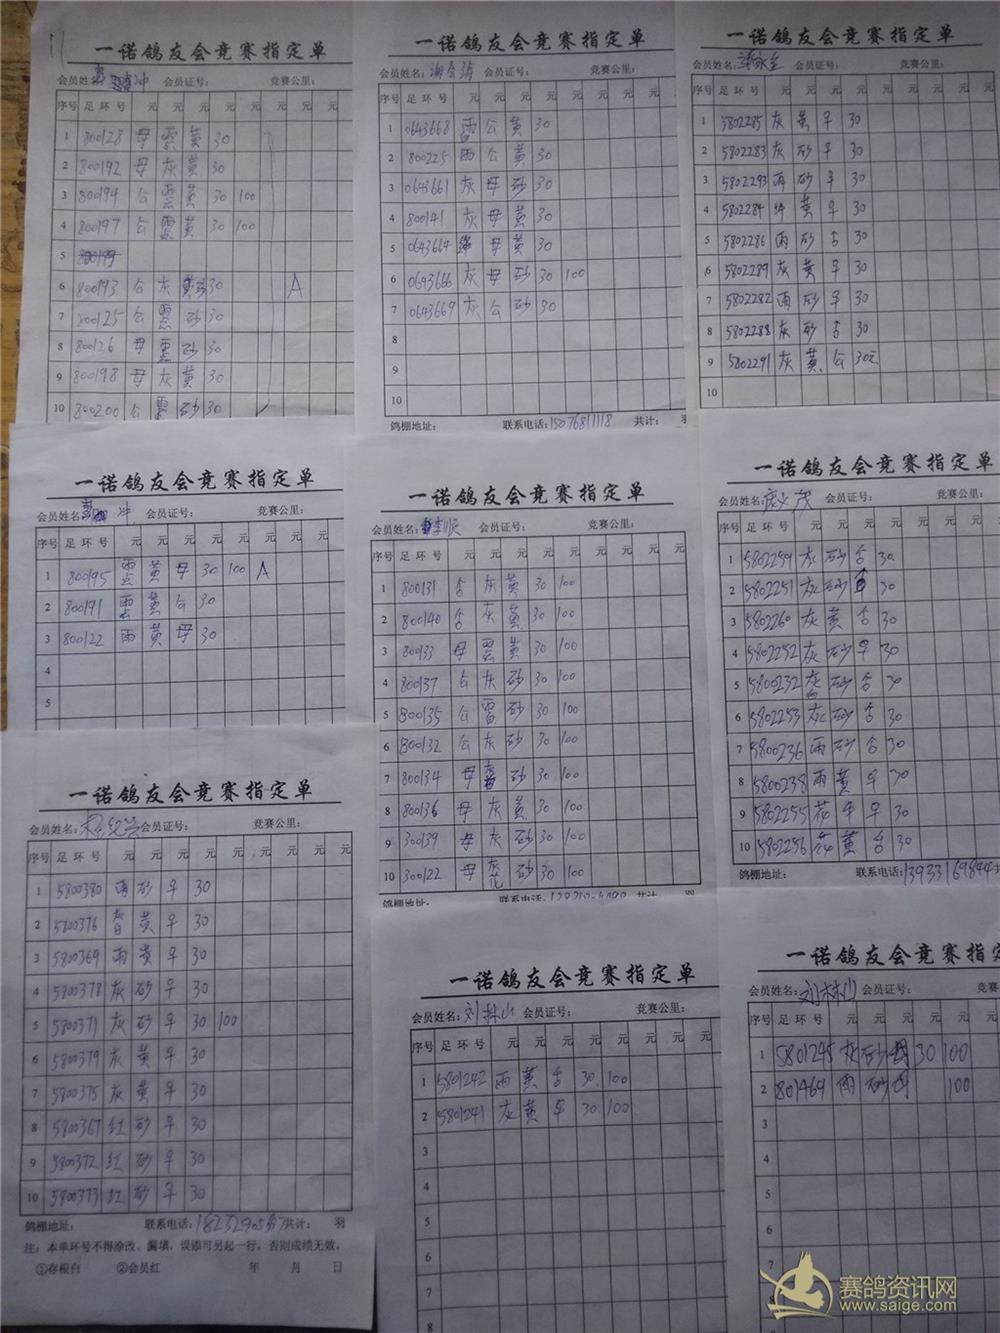 11
一诺鸽友会竞赛指定单
会员姓名: 冲 会员证号: 竞赛公里:
序号 足环号 元 元 元 元 元 元
1 800128 母 雨点 黄 30
2 800192 母 灰 黄 30
3 800194 公 雨点 黄 30 100
4 800197 公 雨点 黄 30 100
5
6 800193 公 灰 30 A
7 800125 公 雨点 砂 30
8 800126 母 雨点 砂 30
9 800198 母 灰 黄 30
10 800200 公 雨点 砂 30
一诺鸽友会竞赛指定单
会员姓名: 会员证号: 竞赛公里:
序号 足环号 元 元 元 元 元 元
1 0643668 公 黄 30
2 800225 雨 公 黄 30
3 0643661 灰 母 砂 30
4 800141 灰 母 黄 30
5 0643664 母 黄 30
6 0643666 灰 母 砂 30 100
7 0643669 灰 公 砂 30
8
9
10
鸽棚地址: 联系电话:15076811118 共计: 羽
一诺鸽友会竞赛指定单
会员姓名: 会员证号: 竞赛公里:
序号 足环号 元 元 元 元 元
1 5802285 灰 黄 早 30
2 5802283 灰 砂 早 30
3 5802293 雨 砂 早 30
4 5802284 黄 早 30
5 5802286 雨 砂 台 30
6 5802289 灰 黄 早 30
7 5802282 雨 砂 早 30
8 5802288 灰 砂 台 30
9 5802291 灰 黄 公 30元
10
一诺鸽友会竞赛指定单
会员姓名: 冲 会员证号: 竞赛公里:
序号 足环号 元 元 元 元 元 元
1 800195 雨点 黄 母 30 100 A
2 800191 雨点 黄 公 30
3 800122 雨 黄 母 30
4
5
一诺鸽友会竞赛指定单
会员姓名: 李顺 会员证号: 竞赛公里:
序号 足环号 元 元 元 元 元 元
1 800131 台 灰 黄 30 100
2 800140 台 灰 黄 30 100
3 800133 母 雨点 黄 30 100
4 800137 公 灰 砂 30 100
5 800135 公 砂 30 100
6 800132 公 灰 砂 30 100
7 800134 母 砂 30 100
8 800136 母 灰 黄 30 100
9 300139 母 灰 砂 30 100
10 300122 母 灰花 砂 30 100
鸽棚地址: 联系电话: 共计 羽
一诺鸽友会竞赛指定单
会员姓名: 会员证号: 竞赛公里:
序号 足环号 元 元 元 元 元
1 5802259 灰 砂 台 30
2 5802251 灰 砂 30
3 5802260 灰 黄 台 30
4 5802252 灰 砂 早 30
5 5800232 砂 台 30
6 5802253 灰 砂 台 30
7 5800236 雨 砂 台 30
8 5800238 雨 黄 早 30
9 5802255 花 早 30
10 5802256 花 黄 台 30
鸽棚地址: 联系电话:
一诺鸽友会竞赛指定单
会员姓名: 会员证号: 竞赛公里:
序号 足环号 元 元 元 元 元 元
1 5800380 雨 砂 早 30
2 5800376 黄 早 30
3 5800369 雨 黄 早 30
4 5800378 灰 砂 早 30
5 5800371 灰 砂 早 30 100
6 5800379 灰 黄 早 30
7 5800375 灰 黄 早 30
8 5800367 红 砂 早 30
9 5800372 红 砂 早 30
10 5800373 红 砂 早 30
鸽棚地址: 联系电话: 共计: 羽
注:本单环号不得涂改、漏填,误添可另起一行,否则成绩无效。
①存根白 ②会员红 年 月 日
一诺鸽友会竞赛指定单
会员姓名:刘林山 会员证号: 竞赛公里:
序号 足环号 元 元 元 元 元 元
1 5801242 雨 黄 台 30 100
2 5801241 灰 黄 早 30 100
3
4
5
6
7
8
一诺鸽友会竞赛指
会员姓名:刘林山 会员证号: 竞赛
序号 足环号 元 元 元 元
1 5801245 灰 砂 母 30 100
2 801464 雨 砂 母 100
3
4
5
6
7
8
赛鸽资讯网
www.saige.com